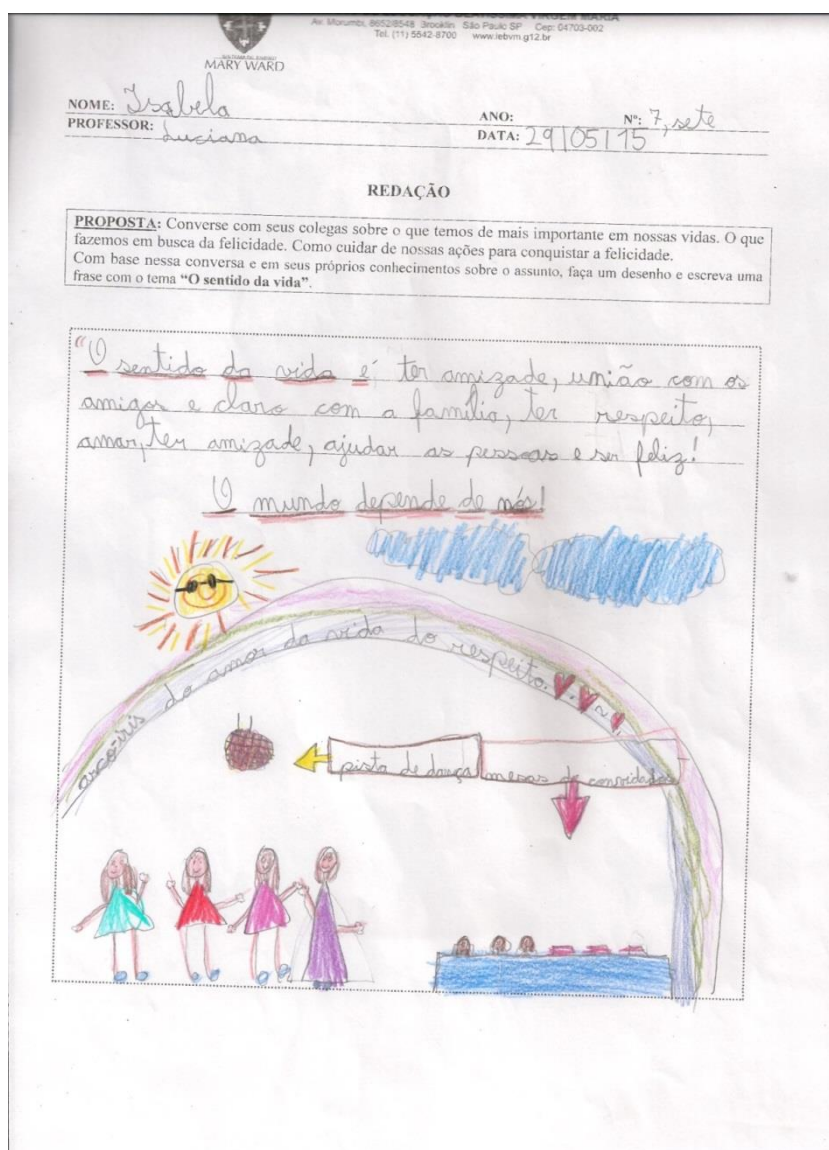 VIRGEM MARIA
Av. Morumbi, 8652/8548 Brooklin São Paulo SP Cep: 04703-002
Tel. (11) 5542-8700 www.iebvm.g12.br
MARY WARD
NOME: Isabela ANO: Nº: 7, sete
PROFESSOR: Luciana DATA: 29/05/15
REDAÇÃO
PROPOSTA: Converse com seus colegas sobre o que temos de mais importante em nossas vidas. O que
fazemos em busca da felicidade. Como cuidar de nossas ações para conquistar a felicidade.
Com base nessa conversa e em seus próprios conhecimentos sobre o assunto, faça um desenho e escreva uma
frase com o tema “O sentido da vida”.
“O sentido da vida é ter amizade, união com os
amigos e claro com a família, ter respeito,
amar, ter amizade, ajudar as pessoas e ser feliz!
O mundo depende de nós!
arco-iris do amor da vida do respeito.
pista de dança mesas de convidados